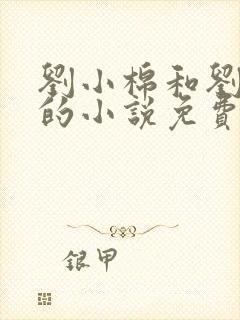 劉小棉和劉
的小說免費
銀甲